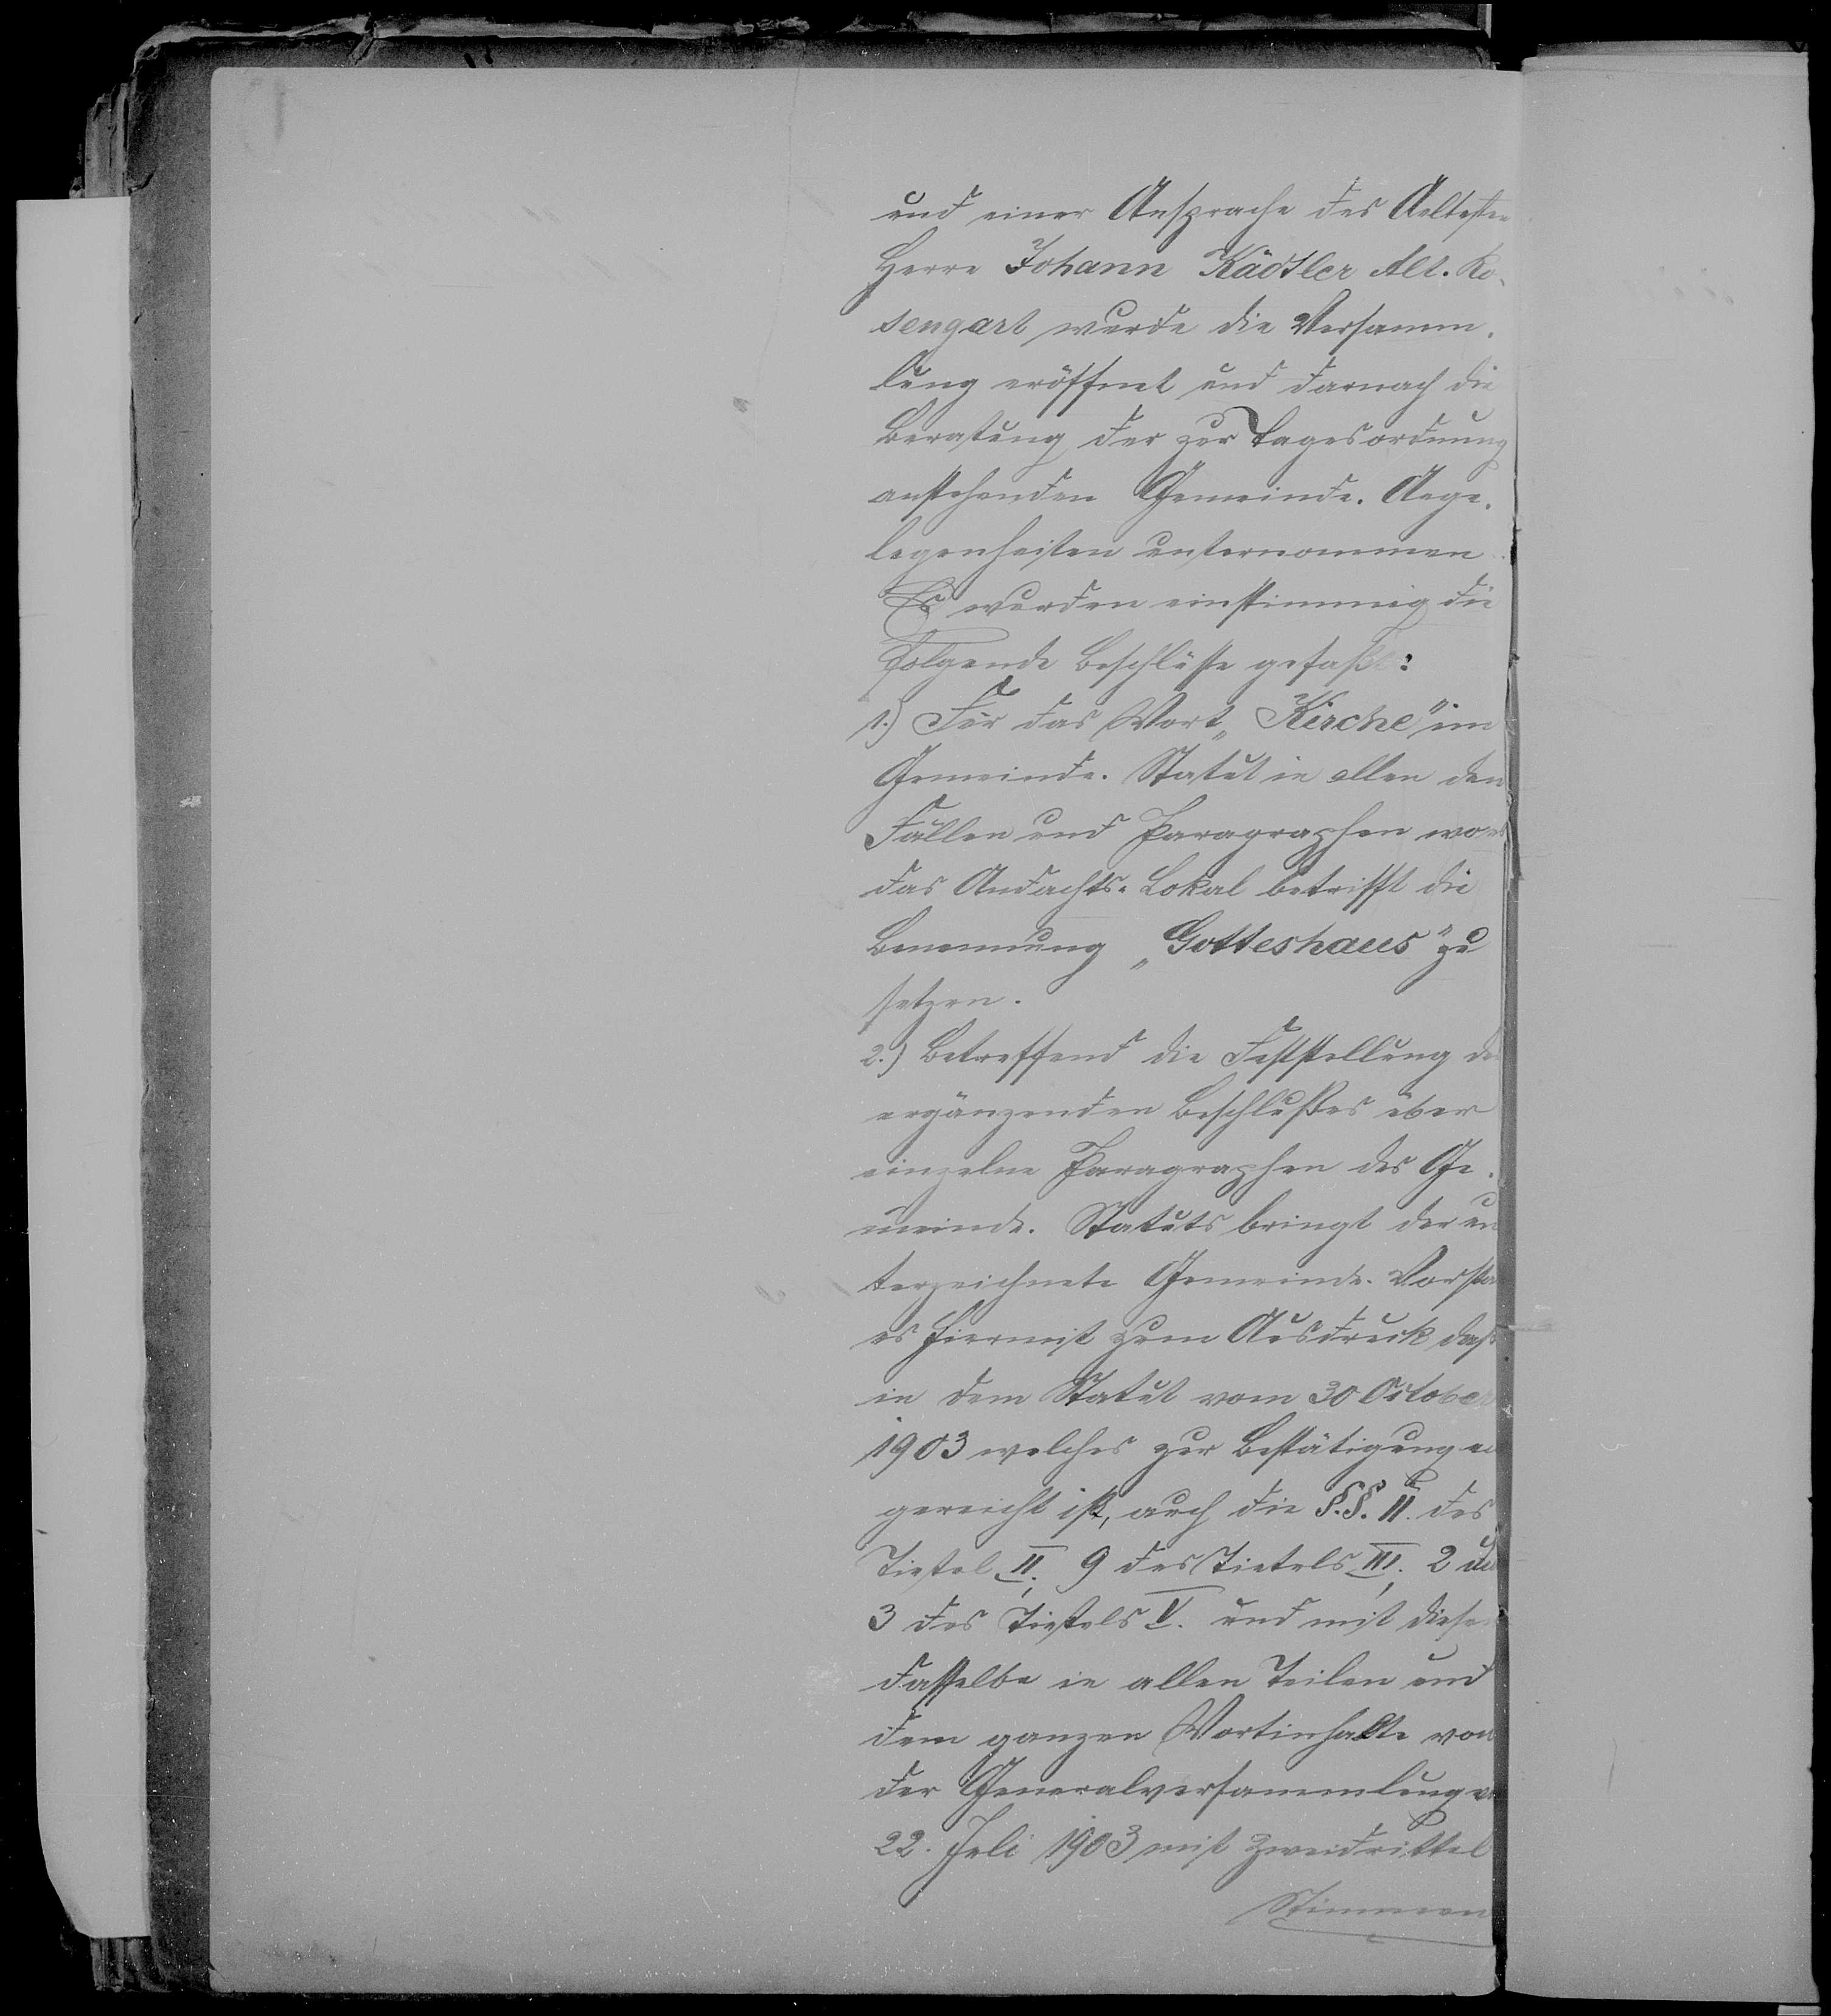 und einer Ansprache des Aeltesten
Herrn Johann Kädtler Alt. Ro-
sengart wurde die Versamm-
lung eröffnet und darnach die
Beratung der zur Tagesordnung
anstehenden Gemeinde-Ange-
legenheiten unternommen.
Es wurden einstimmig die
folgende Beschlüsse gefaßt:
1.) Für das Wort „Kirche" im
Gemeinde-Statut in allen den
Fällen und Paragraphen wo es
das Andachts-Lokal betrifft die
Benennung „Gotteshaus" zu
setzen.
2.) Betreffend die Feststellung des
ergänzenden Beschlußes über
einzelne Paragraphen des Ge-
meinde-Statuts bringt der un
terzeichnete Gemeinde-Vorsta
es hiermit zum Ausdruck daß
in dem Statut vom 30 October
1903 welches zur Bestätigung
gereicht ist, auch die §.§. 11. des
Tietel II; 9 des Tietels III; 2 und
3 des Tietels V. und mit diesen
dasselbe in allen Teilen und
dem ganzen Wortinhalte von
der Generalversammlung
22. Juli 1903 mit Zweidrittel
Stimmen